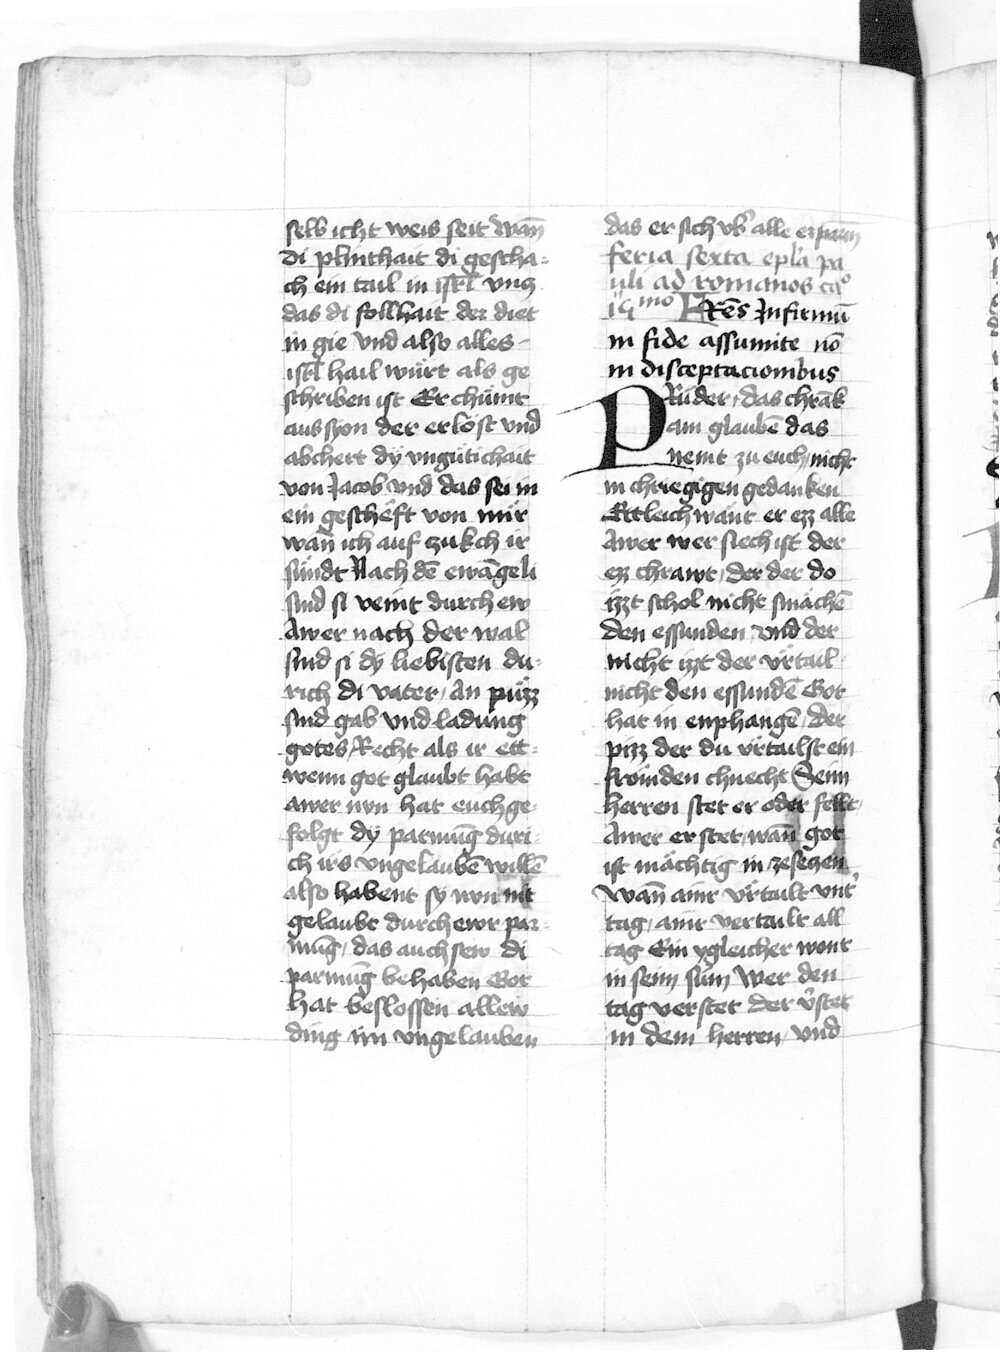 selb icht weis seit wan̄
di plinthait di gescha-
ch ein tail in isrl̄ vnz
das di follhait der diet
in gie vnd also alles
isrl̄ hail würt als ge
schriben ist Er chümt
aus syon der erlöst vnd
abchert dÿ vngütichait
von Jacob vnd das sei in
ein geschëft von mir
wan̄ ich auf zukch ir
sündt Nach dē ewāgeli
sind si veint durch ew
Awer nach der wal
sind si dÿ liebisten du-
rich di vater, an püzz
sind gab vnd ladung
gotes, Recht als ir ett-
wenn got glaubt habt
awer nvn hat euch ge-
folgt dÿ parmūg duri-
ch irs vngelaubē willē
also habent sy nvn nit
gelaubt durch ewr par-
mūg, das auch sew di
parmūg behaben Got
hat beslossen allew
ding im vngelauben
das er sich vb' alle erparm
feria sexta epl'a pa
uli ad romanos ca°
14mo FRēs Infirmū
in fide assumite nō
in disceptacionibus
PRüder, das chrāk
am glaubē das
nemt zu euch, nicht
in chriegigen gedanken
Ettleich wänt er ezz alle
Awer wer siech ist der
ezz chrawt, der der do
izzt schol nicht smächē
den essunden, vnd der
nicht izzt der vrtail
nicht den essundē Got
hat in enphangē, der
pizz der du vrtailst ein
frömden chnecht Seim
herren stet er oder fellt,
Awer er stet, wan̄ got
ist mächtig in zesetzen
Wan̄ ainr vrtailt vntr'
tag, ainr vertailt all
tag Ein ygleicher wont
in seim sün̄ Wer den
tag verstet der v'stet
in dem herren, vnd